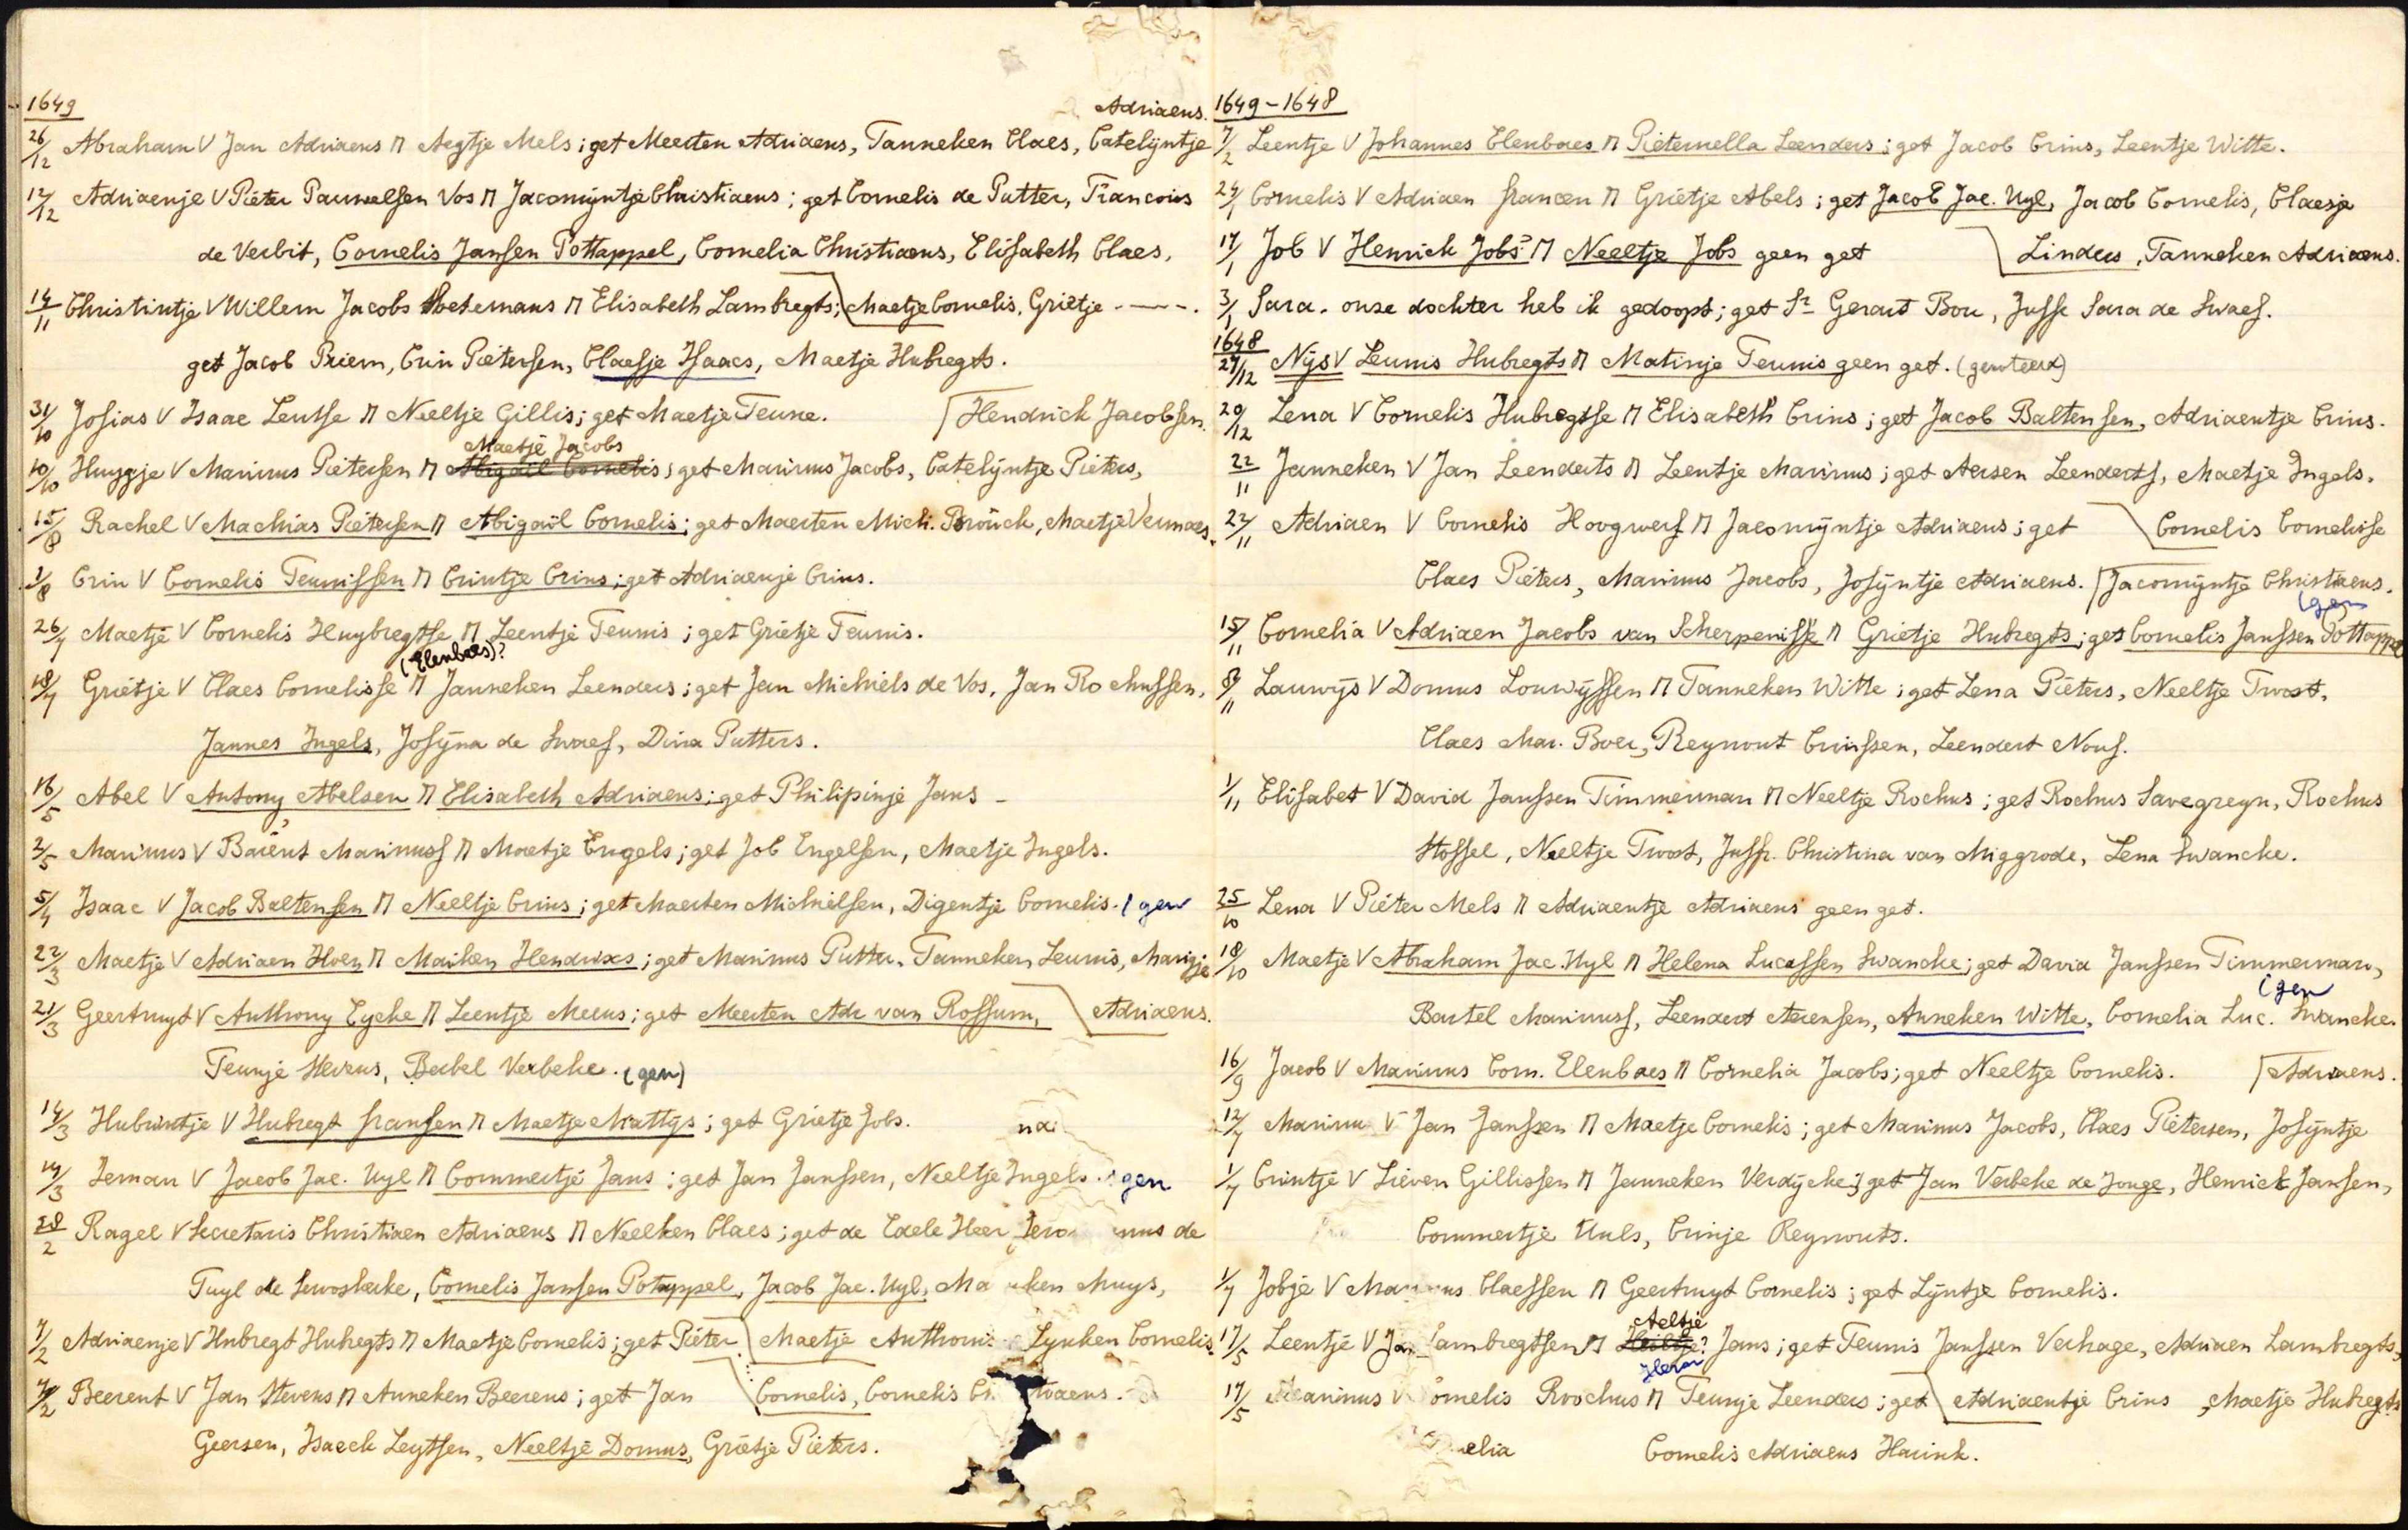 1649
Adriaens.
26/12 Abraham V Jan Adriaens M Aegtje Mels; get Meerten Adriaens, Tanneken Claes, Catelijntje
12/12 Adriaenje V Pieter Pauwelsen Vos M Jacomijntje Christiaens; get Cornelis de Putter, Francois
de Verbit, Cornelis Jansen Pottappel, Cornelia Christiaens, Elisabeth Claes,
14/11 Christintje V Willem Jacobs M Elisabeth Lambregts; Maetje Cornelis, Grietje - — - .
get Jacob Priem, Crin Pietersen, Claesje Isaacs, Maetje Hubregts.
31/10 Josias V Isaac Leutse M Neeltje Gillis; get Maetje Teune. Hendrick Jacobsen.
Maetje Jacobs
10/10 Huygje V Marinus Pietersen M Abigail Cornelis; get Marinus Jacobs, Catelijntje Pieters,
15/8 Rachel V Machias Pietersen M Abigaïl Cornelis; get Maerten Mich. Brouck, Maetje Vermaes.
1/8 Crin V Cornelis Teunissen M Crintje Crins; get Adriaenje Crins.
26/7 Maetje V Cornelis Huybregtse M Leentje Teunis; get Grietje Teunis.
(Elenbaes)?
18/7 Grietje V Claes Cornelisse M Janneken Leenders; get Jan Michiels de Vos, Jan Rochussen,
Jannes Ingels, Josijna de Swaef, Dina Putters.
16/5 Abel V Antony Abelsen M Elisabeth Adriaens; get Philipinje Jans -
2/5 Marinus V Baient Marinuss M Maetje Engels; get Job Engelsen, Maetje Ingels.
5/4 Isaac V Jacob Baltensen M Neeltje Crins; get Maerten Michielsen, Digentje Cornelis. (gen
22/3 Maetje V Adriaen Hoen M Maiken Hendrixs; get Marinus Putter, Tanneken Leunis, Marigje
21/3 Geertruyt V Anthony Eyeke M Leentje Meeus; get Meerten Adr van Rossum, Adriaens.
Teunje Stevens, Berbel Verbeke. (gen)
14/3 Hubrintje V Hubregt fransen M Maetje Mattijs; get Grietje Jobs. na
14/3 Leman V Jacob Jac. Uyl M Commertje Jans; get Jan Janssen, Neeltje Ingels. gen
28/2 Ragel V Secretaris Christiaen Adriaens M Neelken Claes; get de Edele Heer Jero mus de
Tuyl de Serooskerke, Cornelis Jansen Potappel, Jacob Jac. Uyl, Ma ken Muys,
7/2 Adriaenje V Hubregt Hubregts M Maetje Cornelis; get Pieter Maetje Anthoni Lynken Cornelis.
7/2 Beerent V Jan Stevens M Anneken Beerens; get Jan Cornelis, Cornelis C tiaens.
Geersen, Isaeck Leytsen, Neeltje Domus, Grietje Pieters.
1649-1648
7/2 Leentje V Johannes Elenbaes M Pieternella Leenders; get Jacob Crins, Leentje Witte.
24/1 Cornelis V Adriaen francen M Grietje Abels; get Jacob Jac. Uyl, Jacob Cornelis, Claesje
17/1 Job V Henrick Jobs? M Neeltje Jobs geen get Linders, Tanneken Adriaens.
3/1 Sara. onze dochter heb ik gedoopt; get Sr Gerart Bou, Juffr Sara de Swaef.
1648
27/12 Nijs V Leunis Hubregts M Matinje Teunis geen get. (genoteerd)
20/12 Lena V Cornelis Hubregtse M Elisabeth Crins; get Jacob Baltensen, Adriaentje Crins.
22/11 Janneken V Jan Leenderts M Leentje Marinus; get Aersen Leenderts, Maetje Ingels.
22/11 Adriaen V Cornelis Hoogwerf M Jacomijntje Adriaens; get Cornelis Cornelisse
Claes Pieters, Marinus Jacobs, Josijntje Adriaens. Jacomijntje Christiaens.
(gen
15/11 Cornelia V Adriaen Jacobs van Scherpenisse M Grietje Hubregts; get Cornelis Janssen Pottappel
8/11 Lauwijs V Domus Louwijssen M Tanneken Witte; get Lena Pieters, Neeltje Troost,
Claes Mar. Boer, Reynout Crinssen, Leendert Nouf.
1/11 Elisabet V David Janssen Timmerman M Neeltje Rochus; get Rochus Savegreyn, Rochus
Stoffel, Neeltje Troost, Juffr. Christina van Miggrode, Lena Swancke.
25/10 Lena V Pieter Mels M Adriaentje Adriaens geen get.
18/10 Maetje V Abraham Jac. Uyl M Helena Lucassen Swancke; get David Janssen Timmerman,
(gen
Bartel Marinuss, Leendert Aerensen, Anneken Witte, Cornelia Luc. Swancke.
16/9 Jacob V Marinus Corn. Elenbaes M Cornelia Jacobs; get Neeltje Cornelis. Adriaens.
12/7 Marinu V Jan Janssen M Maetje Cornelis; get Marinus Jacobs, Claes Pietersen, Josijntje
1/7 Crintje V Lieven Gillissen M Janneken Verdijcke; get Jan Verbeke de Jonge, Henrick Jansen,
Commertje Uuls, Crinje Reynouts.
1/7 Jobje V Marinus Claessen M Geertruyt Cornelis; get Lijntje Cornelis.
Aeltje
17/5 Leentje V Jan Lambregtsen M Heiltje? Jans; get Teunis Janssen Verhage, Adriaen Lambregts,
17/5 Marinus V Cornelis Roochus M Teunje Leenders; get Adriaentje Crins, Maetje Hubregts
elia Cornelis Adriaens Harink.